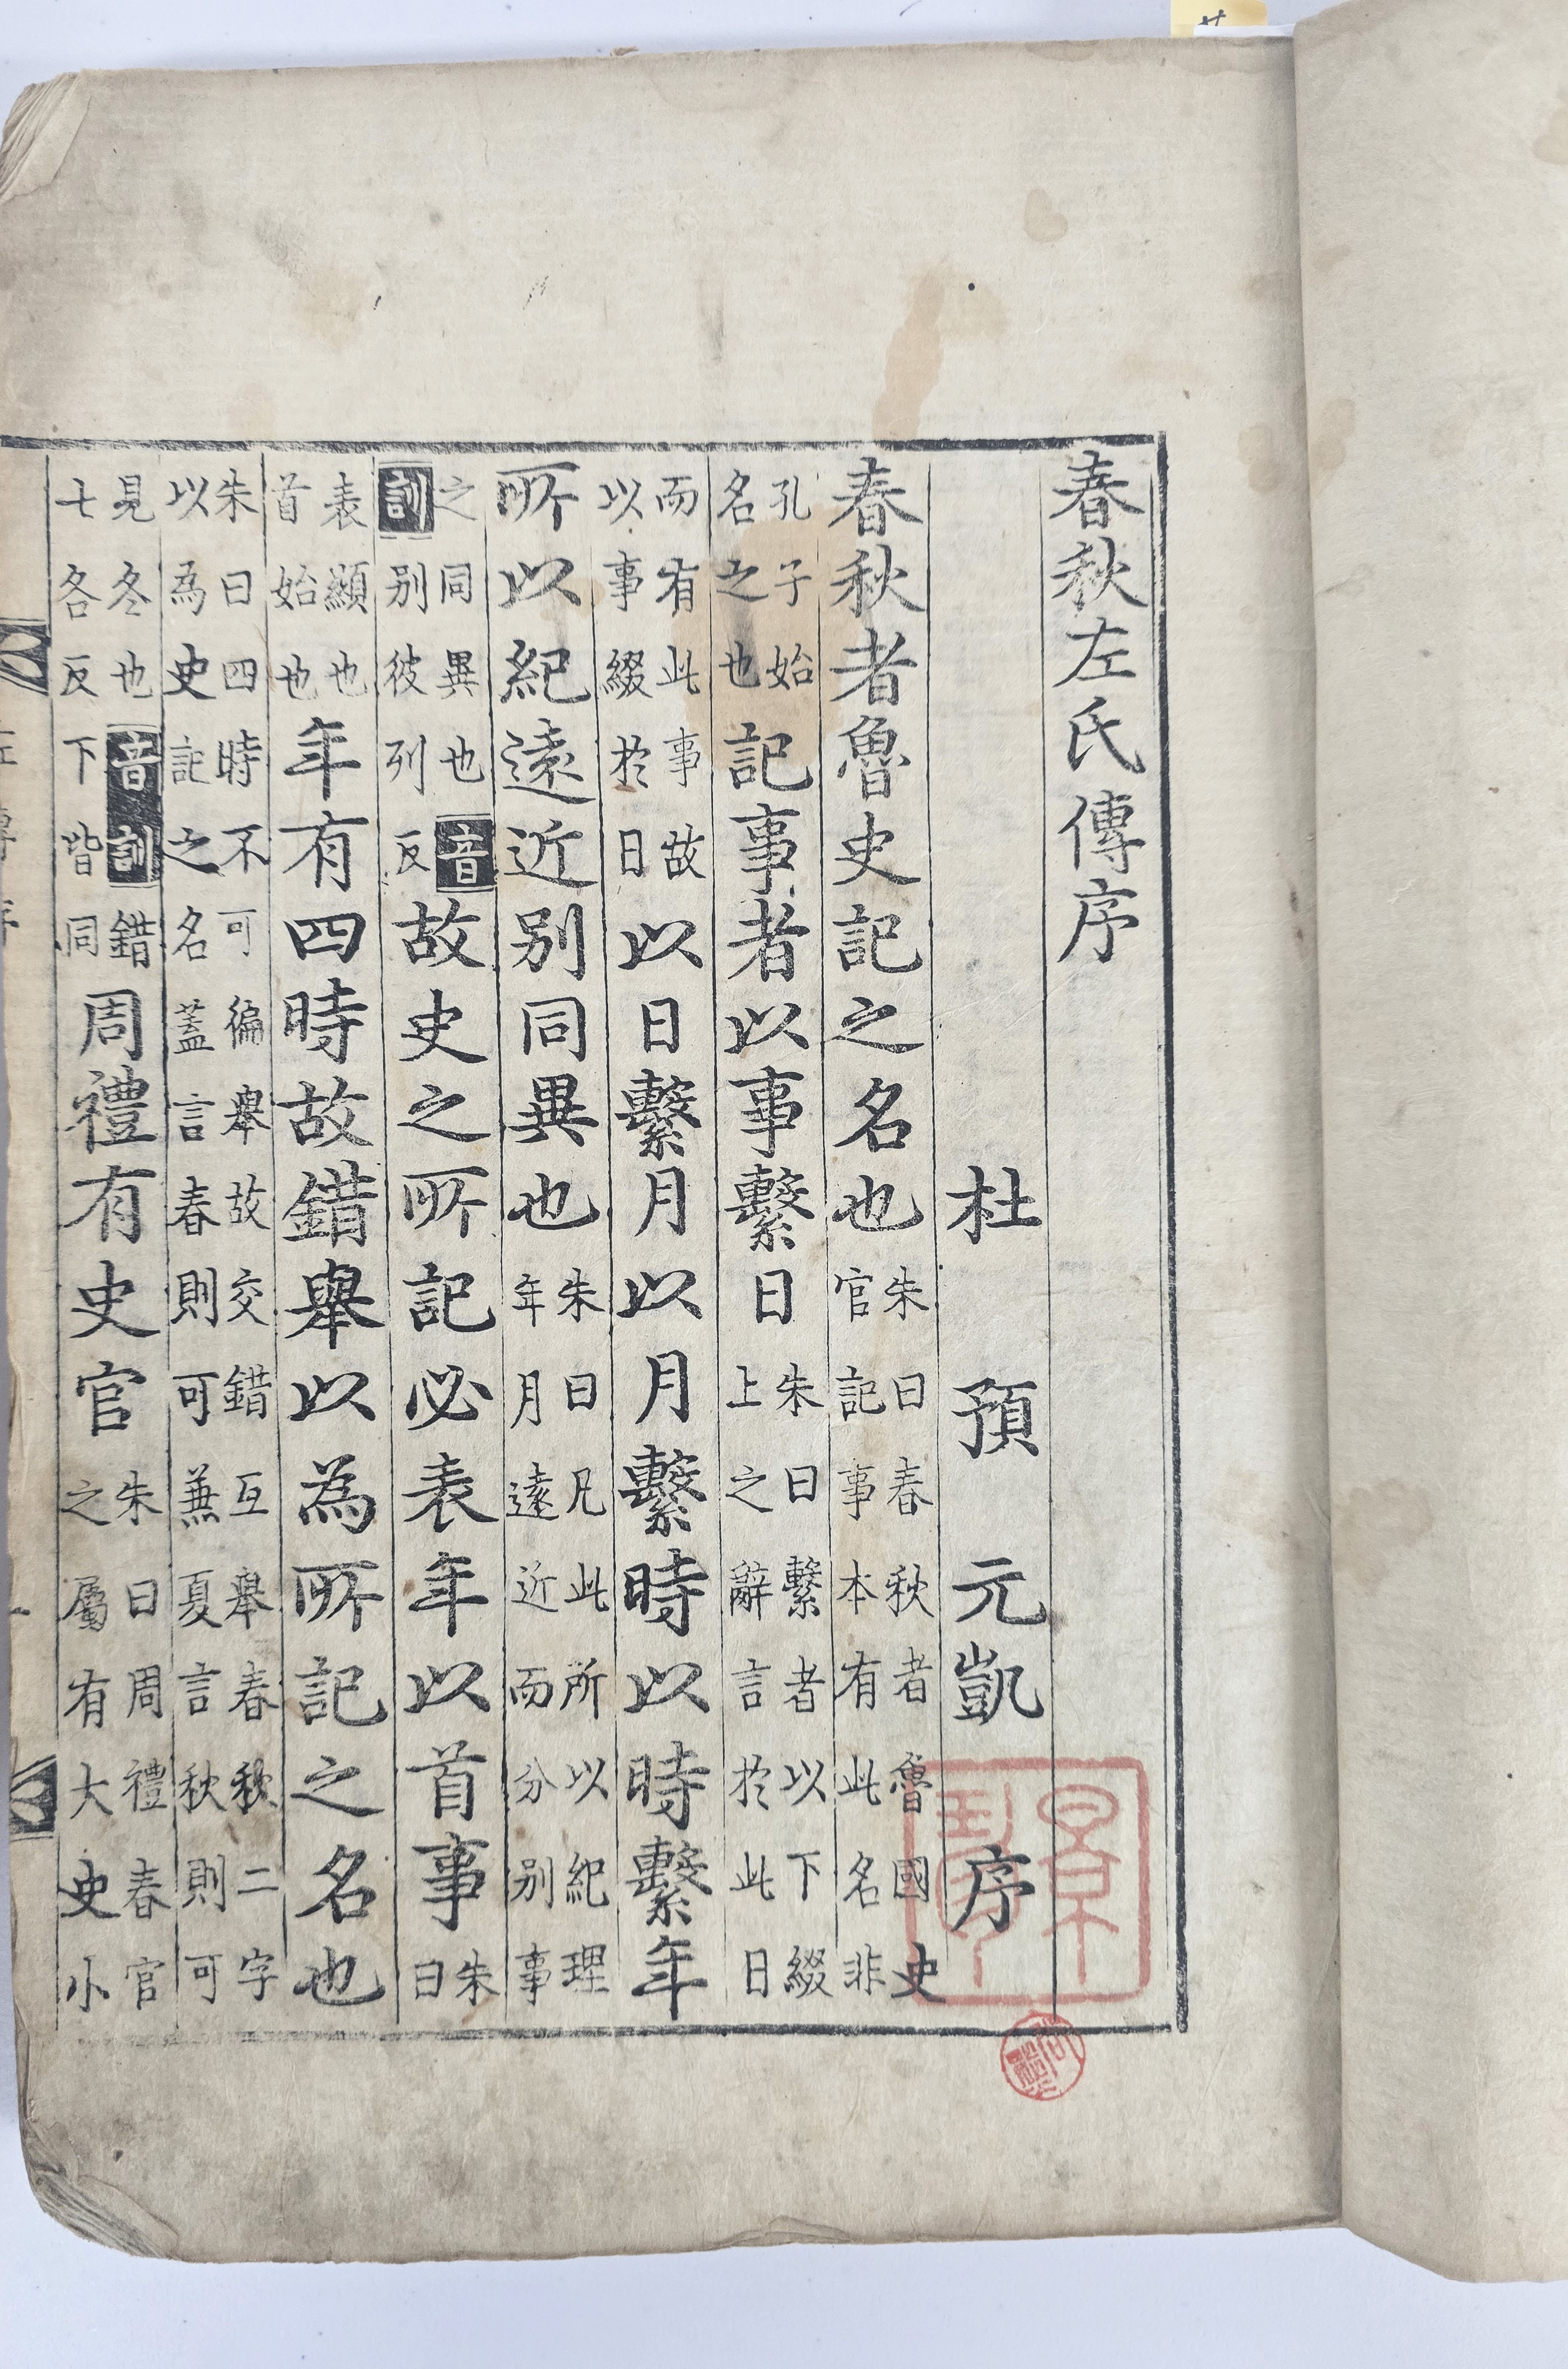 春秋左氏傳序
杜預元凱序
春秋者魯史記之名也朱曰春秋者魯國史官記事本有此名非
孔子始名之也記事者以事繫日朱曰繫者以下綴上之辭言於此日
而有此事故以事綴於日以日繫月以月繫時以時繫年
所以紀遠近別同異也朱曰凡此所以紀理年月遠近而分別事
之同異也音訓別彼列反故史之所記必表年以首事朱曰
表顯也首始也年有四時故錯舉以為所記之名也
朱曰四時不可徧舉故交錯互舉春秋二字以為史記之名蓋言春則可兼夏言秋則可
見冬也音訓錯七各反下皆同周禮有史官朱曰周禮春官之屬有大史小